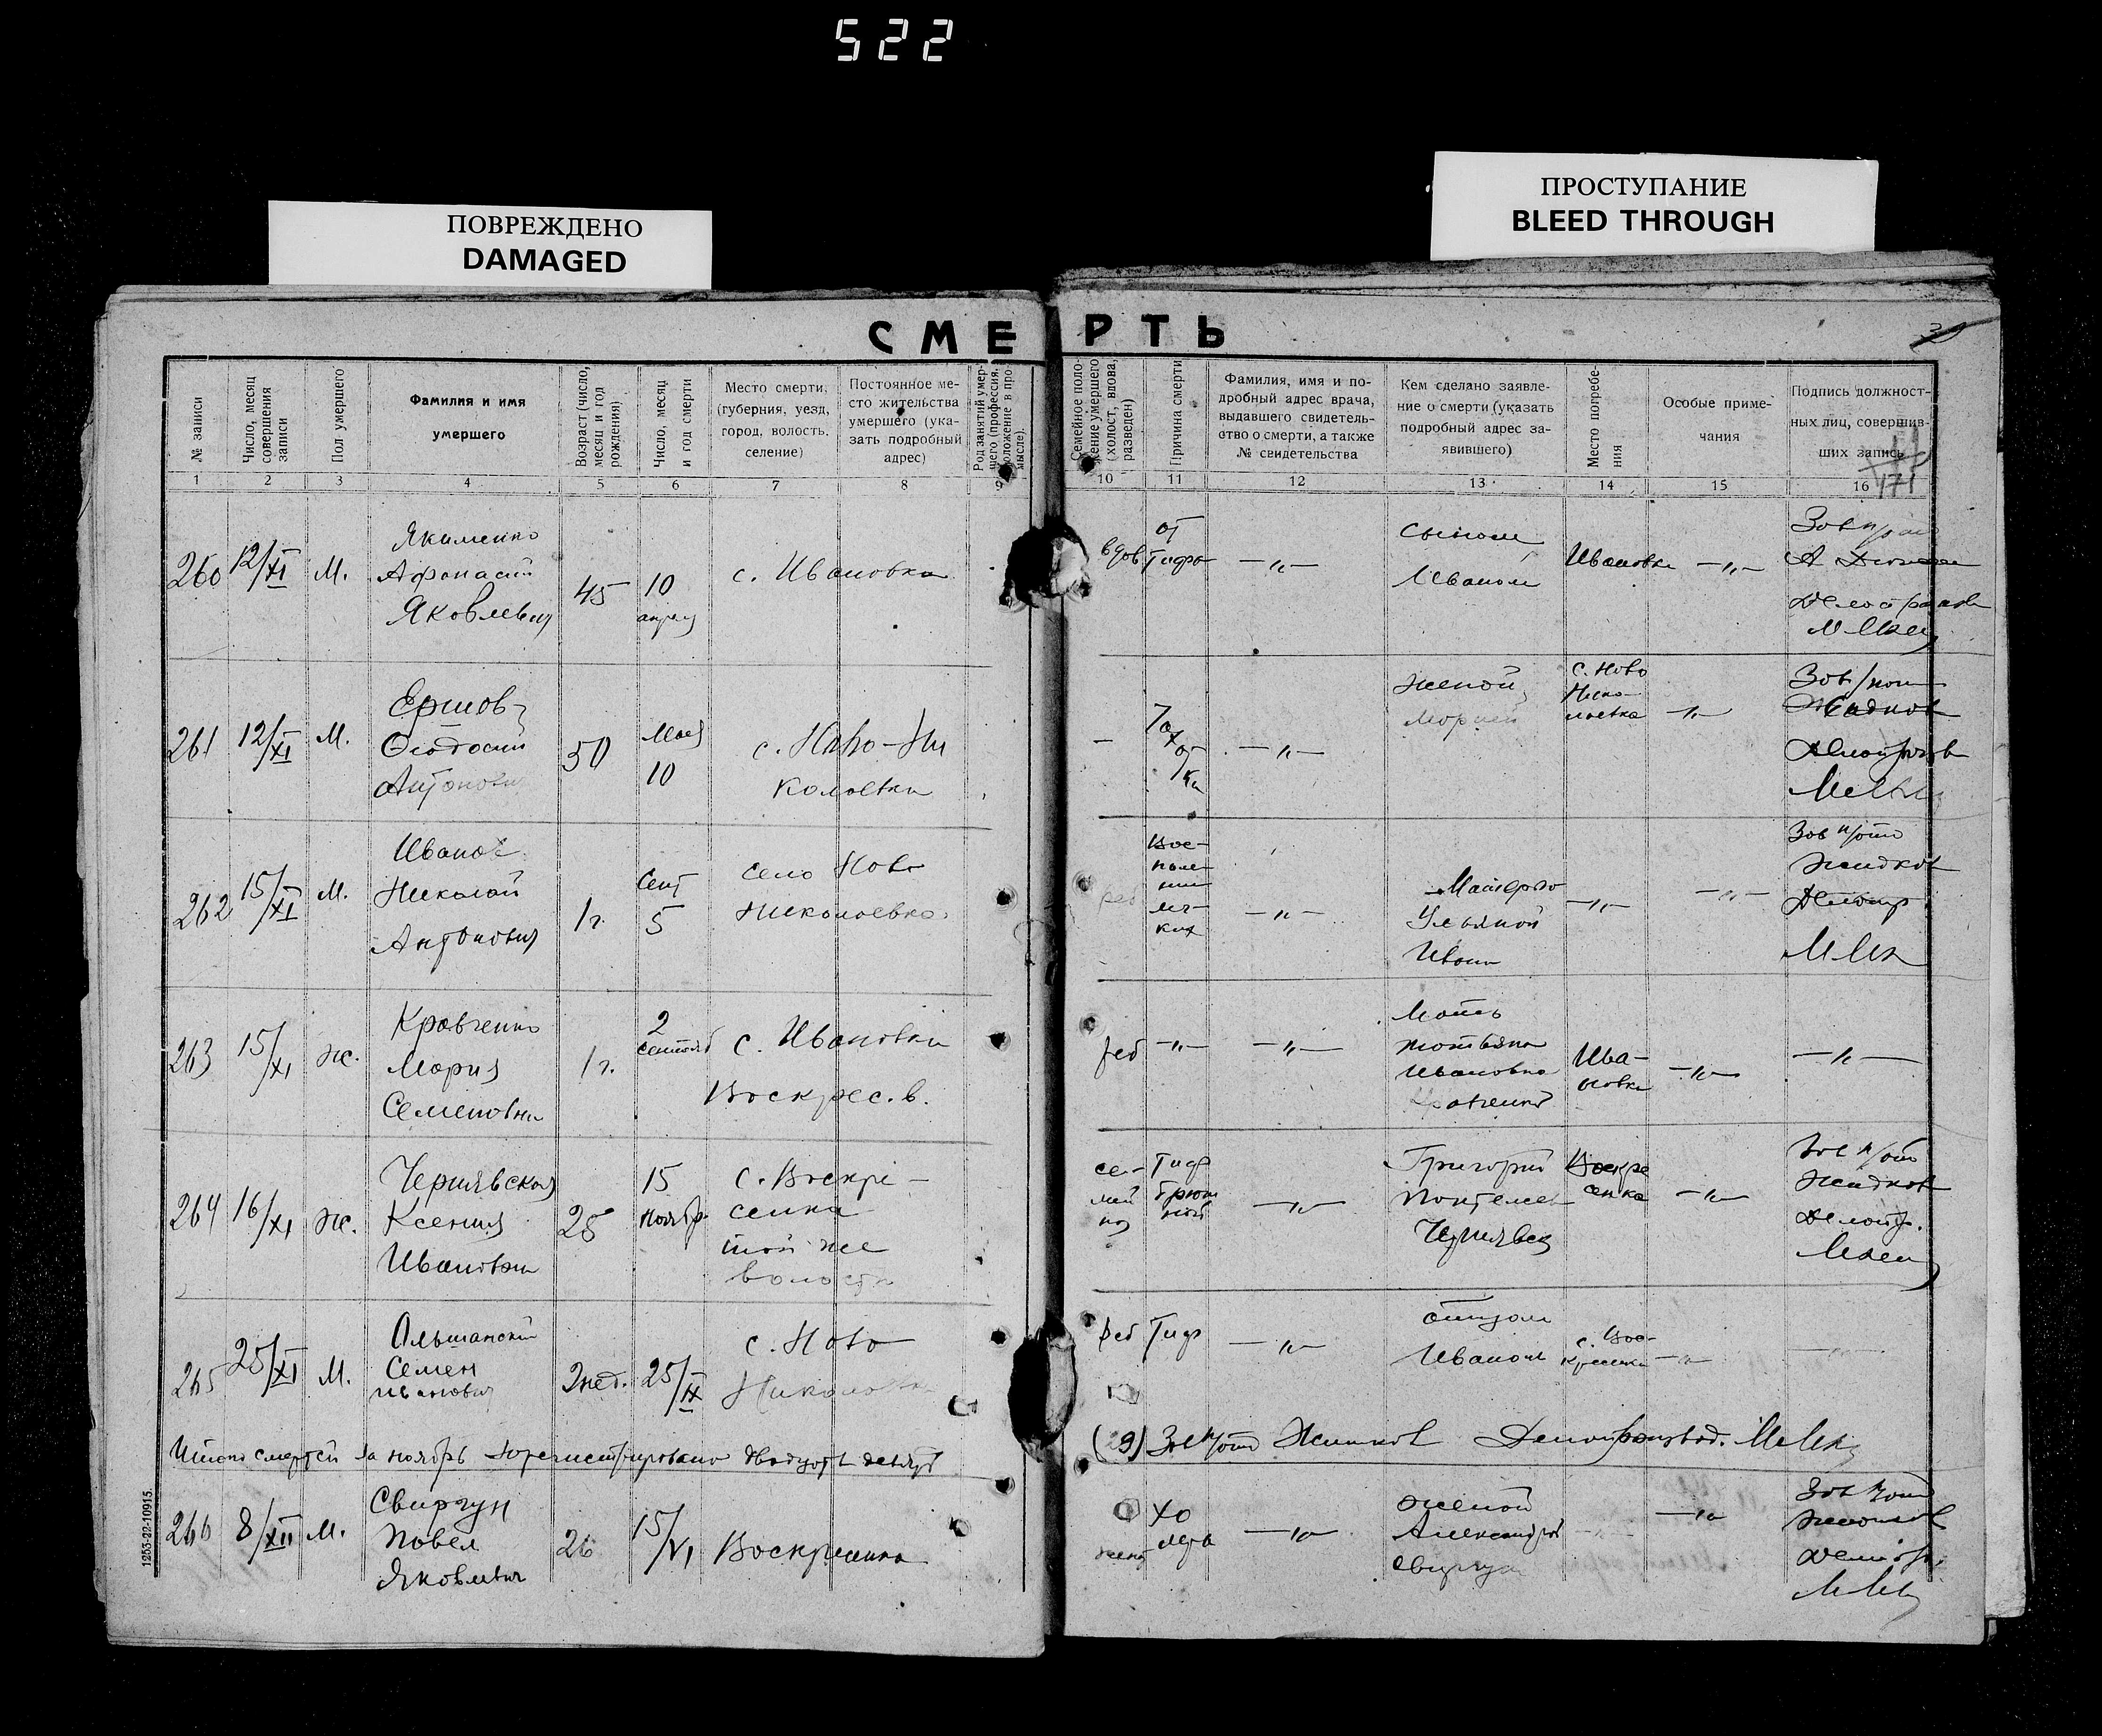 522
ПОВРЕЖДЕНО
DAMAGED
ПРОСТУПАНИЕ
BLEED THROUGH
СМЕРТЬ
№ записи
Число, месяц
совершения
записи
Пол умершего
Фамилия и имя
умершего
Возраст (число,
месяц и год
рождения)
Число, месяц
и год смерти
Место смерти,
(губерния, уезд,
город, волость,
селение)
Постоянное ме-
сто жительства
умершего (ука-
зать подробный
адрес)
Род занятий умер-
шего (профессия,
положение в про-
мысле).
Семейное поло-
жение умершего
(холост, вдова,
разведен)
Причина смерти
Фамилия, имя и по-
дробный адрес врача,
выдавшего свидетель-
ство о смерти, а также
№ свидетельства
Кем сделано заявле-
ние о смерти (указать
подробный адрес за-
явившего)
Место погребе-
ния
Особые приме-
чания
Подпись должност-
ных лиц, совершив-
ших запись
171
1 2 3 4 5 6 7 8 9 10 11 12 13 14 15 16
260 12/XI М.
Якименко
Афанасий
Яковлевич
45
10
апреля
с. Ивановка
вдов
от
Тифа
—„—
сыном
Иваном
Ивановка
—„—
261 12/XI М.
Ершов
Феодосий
Антонович
50
Мая
10
с. Ново-Ни
колаевка
—
—„—
женой
Марией
с. Ново
Нико-
лаевка
—„—
262 15/XI М.
Иванов
Николай
Антонович
1 г.
Сент
5
село Ново
Николаевка
реб
Вос-
пале-
ние
лег-
ких
—„—
Матерью
Ульяной
Иван
—„—
—„—
263 15/XI ж.
Кравченко
Мария
Семеновна
1 г.
2
сентяб
с. Ивановка
Воскрес. в.
реб
—„—
—„—
Мать
Татьяна
Ивановна
Кравченко
Ива-
новка
—„—
—„—
264 16/XI ж.
Чернявская
Ксения
Ивановна
28
15
ноябр
с. Воскре-
сенка
той же
волости
се-
мей
ная
Тиф
брюш
ной
—„—
Григорий
Чернявск
Воскре
сенка
—„—
265 25/XI М.
Ольшанский
Семен
Иванович
2 нед.
25/IX
с. Ново
Николаевка
реб
Тиф
—„—
отцом
Иваном
с. Вос-
кресенка
—„—
Итого смертей за ноябрь зарегистрировано двадцать девять
(29)
266 8/XII М.
Свиргун
Павел
Яковлевич
26
15/VI
Воскресенка
женат
Хо
лера
—„—
женой
Александрой
Свиргун
—„—
—„—
1253-22-10915.